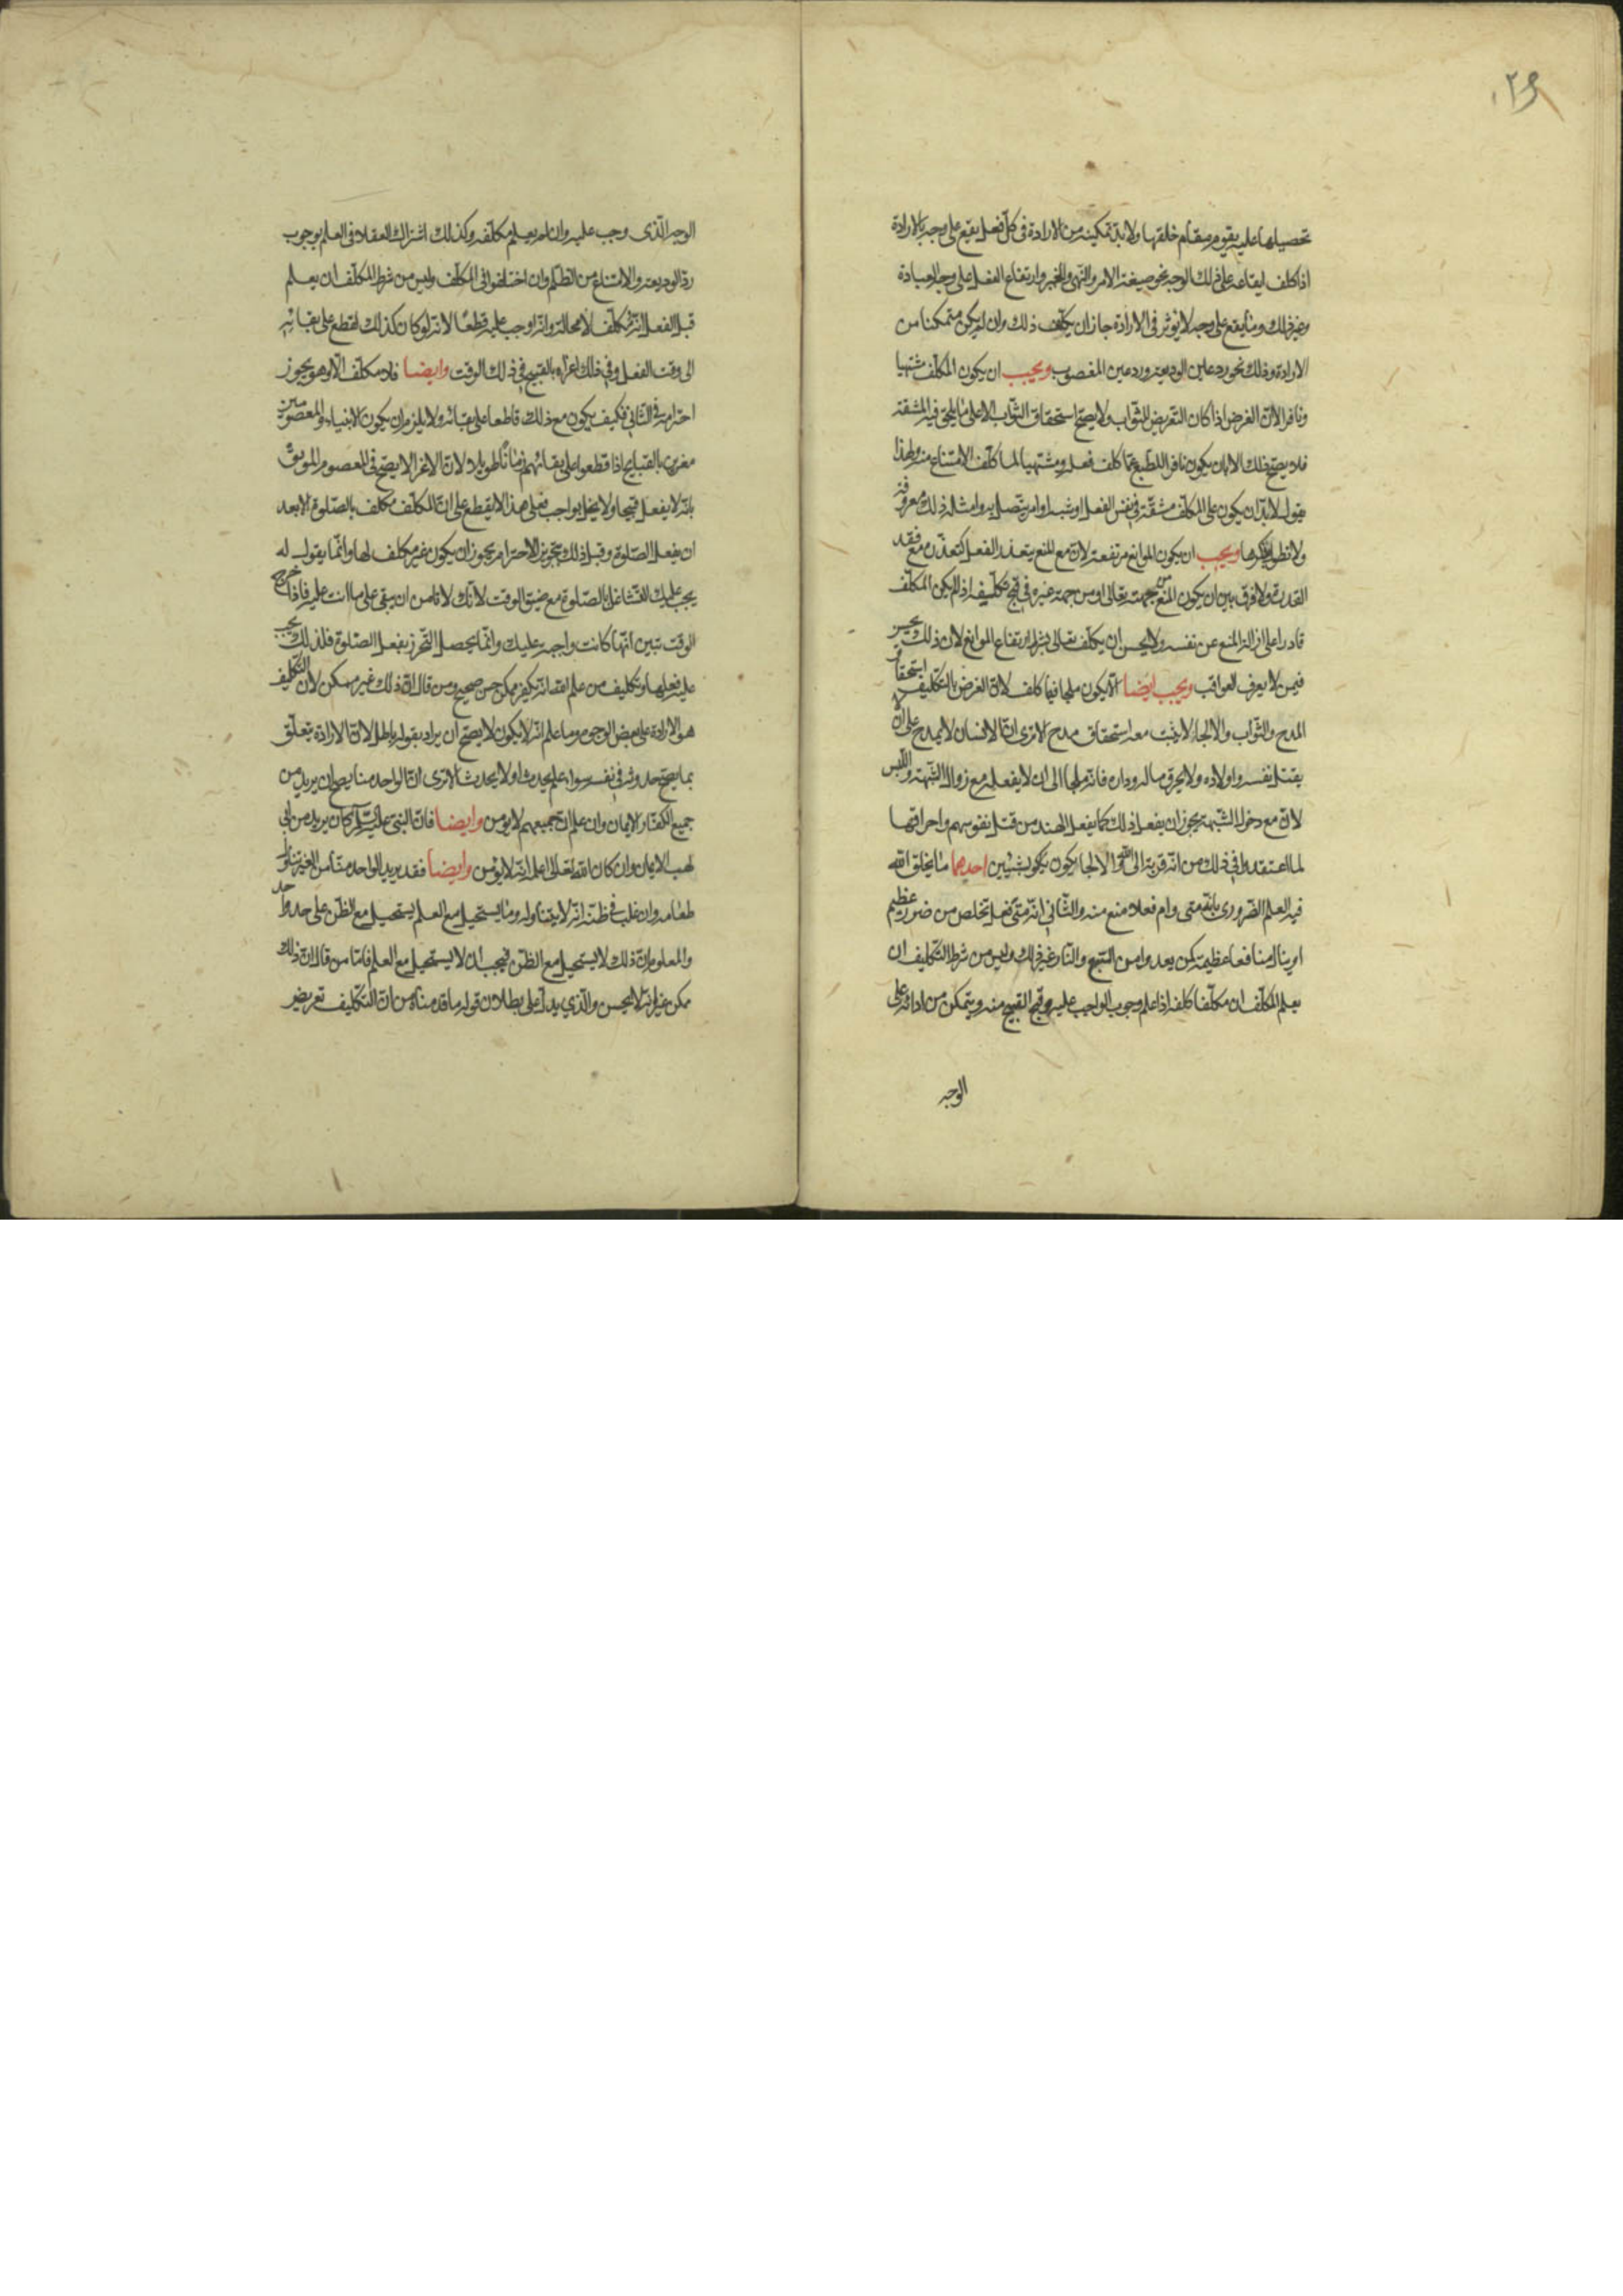 ١٢٩
تحصيلها عليه يقوم مقام خلقها ولابد تمكينه من الارادة في كل فعل يقع على وجه بالارادة
اذا كلف ايقاعه على ذلك الوجه نحو صيغة الامر والنهى والخبر وارتفاع الفعل على وجه العبادة
وغير ذلك وما يقع على وجه لا يؤثر فى الارادة جاز ان يكلف ذلك وان لم يكن متمكنا من
الارادة وذلك نحو رد عين الوديعة ورد عين المغصوب ويجب ان يكون المكلف مشتهيا
ونافرا لان الغرض اذا كان التعريض للثواب ولا يصح استحقاق الثواب الا على ما يلحق فيه المشقة
فلا يصح ذلك الا بان يكون نافر الطبع عما كلف فعله ومشتهيا لما كلف الامتناع منه ولهذا
يقول لابد ان يكون على المكلف مشقة في نفس الفعل او سببه او امر يتصل به وامثلة ذلك معروفة
ولا نطول بذكرها ويجب ان يكون الموانع مرتفعة لان مع المنع يتعذر الفعل كتعذره مع فقد
القدرة ولا فرق بين ان يكون المنع من جهته تعالى او من جهة غيره في قبح تكليفه اذا لم يكن المكلف
قادرا على ازالة المنع عن نفسه ولا يحسن ان يكلف تعالى بشرط ارتفاع الموانع لان ذلك يحسن
فيمن لا يعرف العواقب ويجب ايضا الا يكون ملجا فيما كلف لان الغرض بالتكليف استحقاق
المدح والثواب والالجاء لا يثبت معه استحقاق مدح الا ترى ان الانسان لا يمدح على ان لا
يقتل نفسه واولاده ولا يحرق ماله وداره فانه ملجا الى ان لا يفعله مع زوال الشبهة واللبس
لان مع دخول الشبهة يجوز ان يفعل ذلك كما يفعل الهند من قتل نفوسهم واحراقها
لما اعتقدوا في ذلك من انه قربة الى الله والالجا يكون بشيئين احدهما ما يخلق الله
فيه العلم الضرورى بانه متى رام فعلا منع منه والثاني انه متى فعل تخلص من ضرر عظيم
او ينال منافعا عظيمة كمن يعدو من السبع والنار وغير ذلك وليس من شرط التكليف ان
يعلم المكلف ان مكلفا كلفه اذا علم وجوب الواجب عليه وقبح القبيح منه ويتمكن من ادائه على
الوجه
الوجه الذى وجب عليه وان لم يعلم مكلفه وكذلك اشتراك العقلاء في العلم بوجوب
رد الوديعة والامتناع من الظلم وان اختلفوا فى المكلف وليس من شرط المكلف ان يعلم
قبل الفعل انه مكلف لا محالة وانه اوجب عليه قطعا لانه لو كان كذلك لقطع على بقائه
الى وقت الفعل وفي ذلك اغراء بالقبيح في ذلك الوقت وايضا فلا مكلف الا وهو يجوز
اخترامه في الثاني فكيف يكون مع ذلك قاطعا على بقائه ولا يلزم ان يكون الانبياء والمعصومين
مغرين بالقبايح اذا قطعوا على بقائهم زمانا طويلا لان الاغرا لا يصح فى المعصوم الموثوق
بانه لا يفعل قبيحا ولا يخل بواجب فعلى هذا لا يقطع على ان المكلف مكلف بالصلوة الا بعد
ان يفعل الصلوة وقبل ذلك يجوز الاخترام يجوز ان يكون غير مكلف لها وانما يقول له
يجب عليك التشاغل بالصلوة مع ضيق الوقت لانك لا تامن ان يبقى على ما انت عليه فاذا خرج
الوقت تبين انها كانت واجبة عليك وانما يحصل التحرز بفعل الصلوة فلذلك يجب
عليه فعلها وتكليف من علم الله انه يكفر ممكن حسن صحيح ومن قال ان ذلك غير ممكن لان التكليف
هو الارادة على بعض الوجوه وما علم انه لا يكون لا يصح ان يراد بقوله باطل لان الارادة يتعلق
بما يصح حدوثه في نفسه سواء علم يحدث او لا يحدث الا ترى ان الواحد منا يصح ان يريد من
جميع الكفار الايمان وان علم ان جميعهم لا يؤمن وايضا فان النبى عليه السلم كان يريد من ابى
لهب الايمان وان كان الله تعالى اعلمه انه لا يؤمن وايضا فقد يريد الواحد منا من الغير تناول
طعامه وان غلب في ظنه انه لا يتناوله وما يستحيل مع العلم يستحيل مع الظن على حد واحد
والمعلوم ان ذلك لا يستحيل مع الظن فيجب ان لا يستحيل مع العلم فاما من قال ان ذلك
ممكن غير انه لا يحسن والذي يدل على بطلان قوله ما قدمناه من ان التكليف تعريض